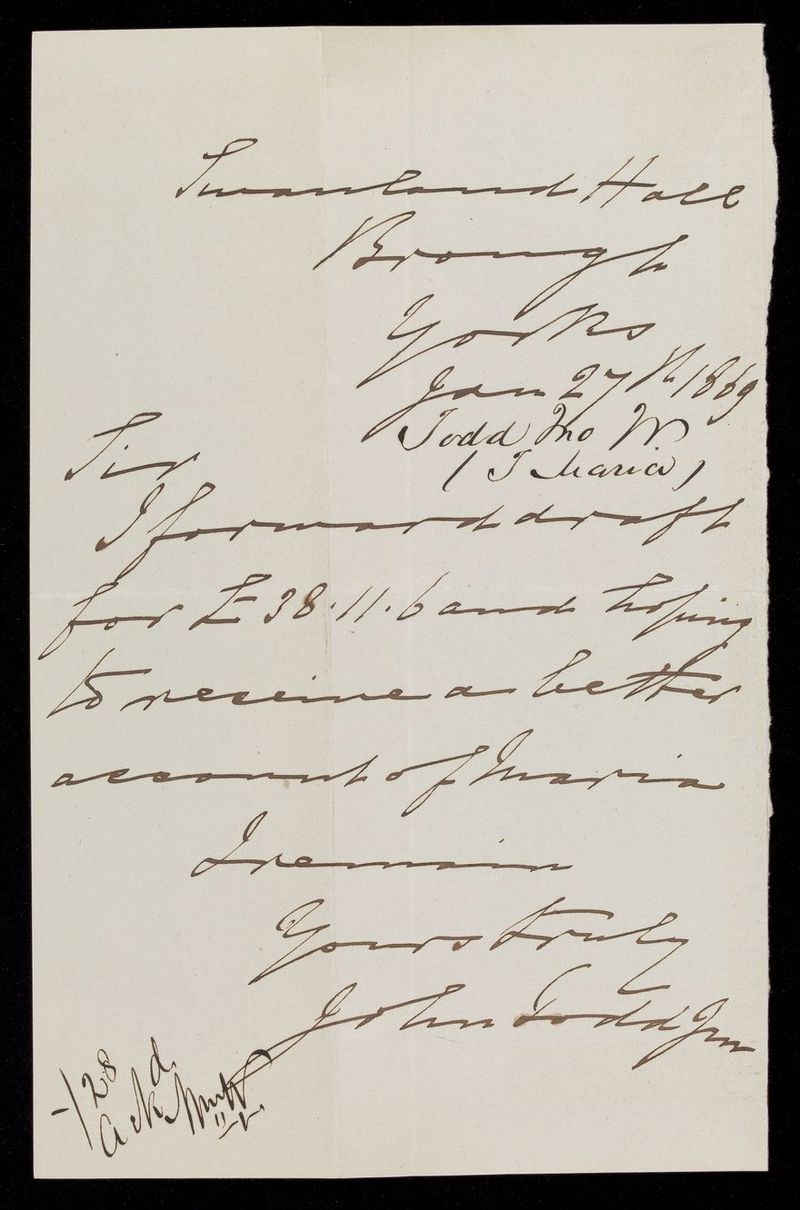 Swanland Hall
Brough
Yorks
Jan 27th 1869
Todd Jno W
( T Maria )
Sir
I forward draft
for £38.11.6 and hoping
to receive a better
account of Maria
I remain
Yours truly
John Todd Jun
28
Ackd